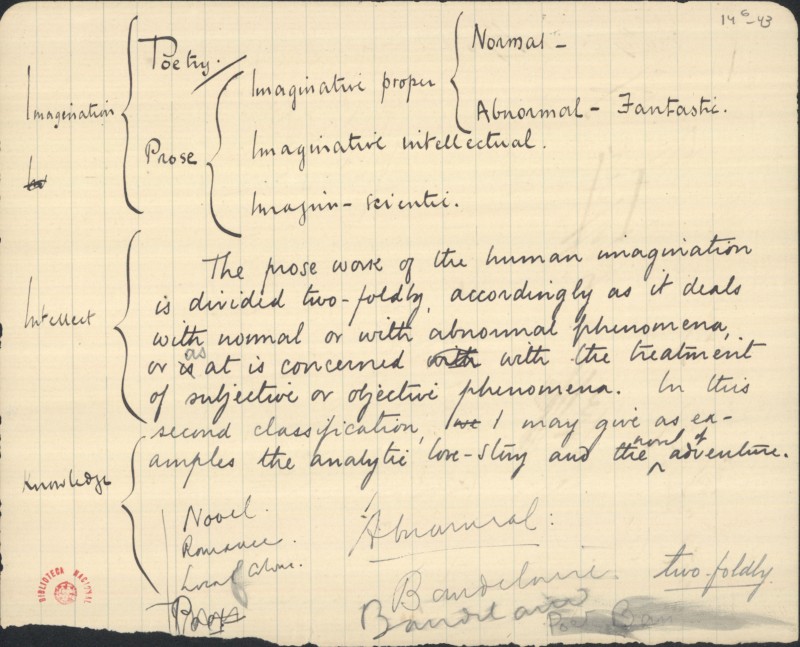 14 6-43
Normal -
Poetry.
Imaginative proper
Imagination
Abnormal - Fantastic.
Prose
Imaginative intellectual.
Imagin- scientic.
The prose work of the human imagination
is divided two-foldly, accordingly as it deals
Intellect
with normal or with abnormal phenomena,
or as at is concerned with with the treatment
of subjective or objective phenomena. In this
second classification, we I may give as ex-
amples the analytic love-story and the novel of adventure.
Knowledge
Novel.
Romance.
Local
Abnormal:
two-foldly.
Baudelaire
Baudelaire
BIBLIOTECA NACIONAL